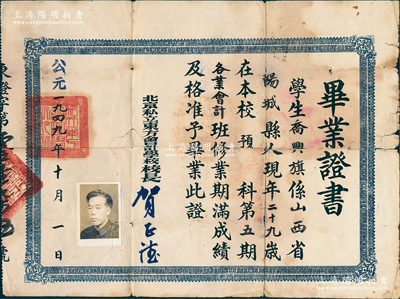 上海陽明拍賣
畢業證書
學生喬興旗係山西省
陽城縣人現年二十九歲
在本校預科第五期
各業會計班修業期滿成績
及格准予畢業此證
北京私立東方會計學校校長
公元一九四九年十月一日